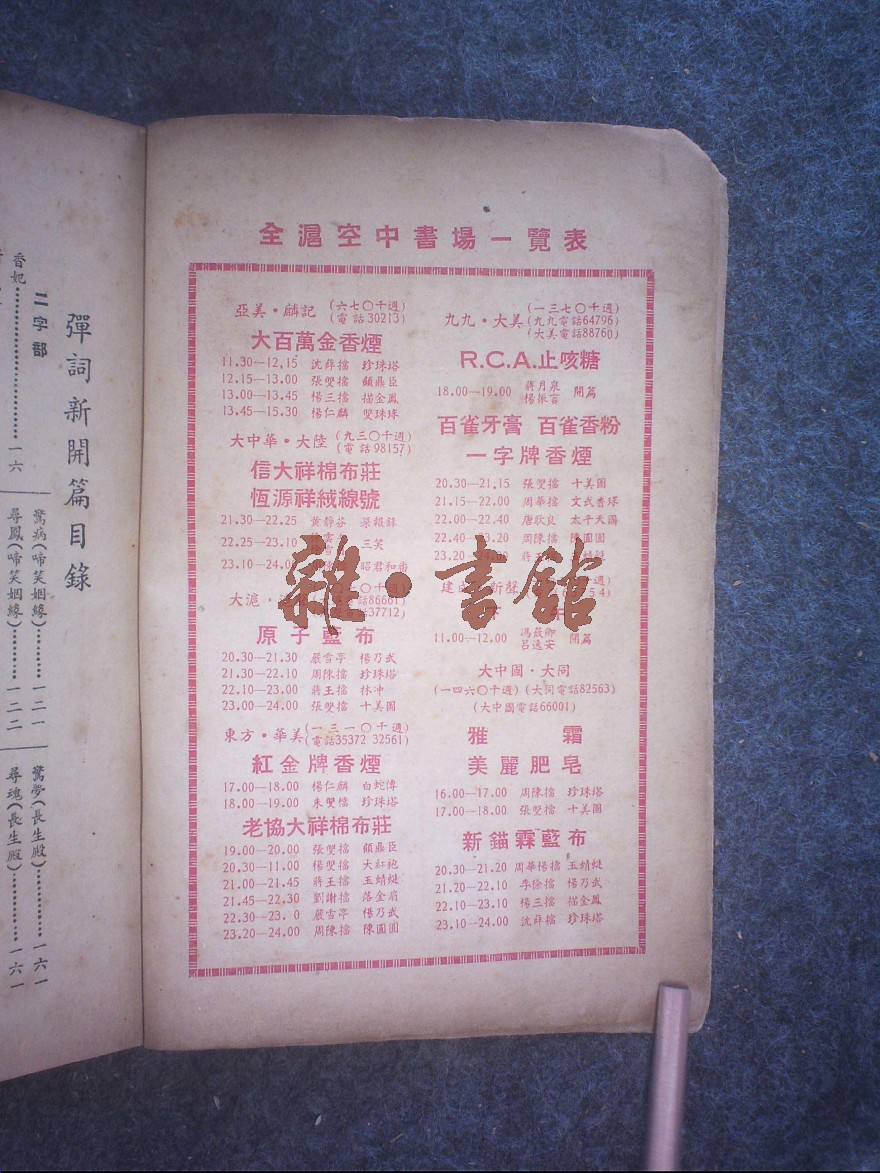 全滬空中書場一覽表
亞美·麟記 (六七〇千週)
(電話30213)
大百萬金香煙
11.30—12.15 沈薛擋 珍珠塔
12.15—13.00 張雙擋 顧鼎臣
13.00—13.45 楊三擋 描金鳳
13.45—15.30 楊仁麟 雙珠球
大中華·大陸 (九三〇千週)
(電話98157)
信大祥棉布莊
恆源祥絨線號
21.30—22.25 黃靜芬
22.25—23.10 三笑
23.10—24.00 昭君和番
大滬
電話86661)
37712)
原子藍布
20.30—21.30 嚴雪亭 楊乃武
21.30—22.10 周陳擋 珍珠塔
22.10—23.00 蔣王擋 林冲
23.00—24.00 張雙擋 十美圖
東方·華美 (一三一〇千週)
(電話35372 32561)
紅金牌香煙
17.00—18.00 楊仁麟 白蛇傳
18.00—19.00 朱雙擋 珍珠塔
老協大祥棉布莊
19.00—20.00 張雙擋 顧鼎臣
20.30—11.00 楊雙擋 大紅袍
21.00—21.45 蔣王擋 玉蜻蜓
21.45—22.30 劉謝擋 落金扇
22.30—23. 0 嚴雪亭 楊乃武
23.20—24.00 周陳擋 陳圓圓
九九·大美 (一三七〇千週)
(九九電話64796)
(大美電話88760)
R.C.A.止咳糖
18.00—19.00 蔣月泉 楊振言 開篇
百雀牙膏 百雀香粉
一字牌香煙
20.30—21.15 張雙擋 十美圖
21.15—22.00 周華擋 文武香球
22.00—22.40 唐耿良 太平天國
22.40—23.20 周陳擋 陳圓圓
23.20
建 新聲
11.00—12.00 馮筱卿 呂逸安 開篇
大中國·大同
(一四六〇千週) (大同電話82563)
(大中國電話66001)
雅霜
美麗肥皂
16.00—17.00 周陳擋 珍珠塔
17.00—18.00 張雙擋 十美圖
新錨霖藍布
20.30—21.20 周華楊擋 玉蜻蜓
21.20—22.10 李徐擋 楊乃武
22.10—23.10 楊三擋 描金鳳
23.10—24.00 沈薛擋 珍珠塔
雜·書館
彈詞新開篇目錄
二字部
香妃……一六
驚病(啼笑姻緣)……一二一
尋鳳(啼笑姻緣)……一二二
驚夢(長生殿)……一六一
尋魂(長生殿)……一六一